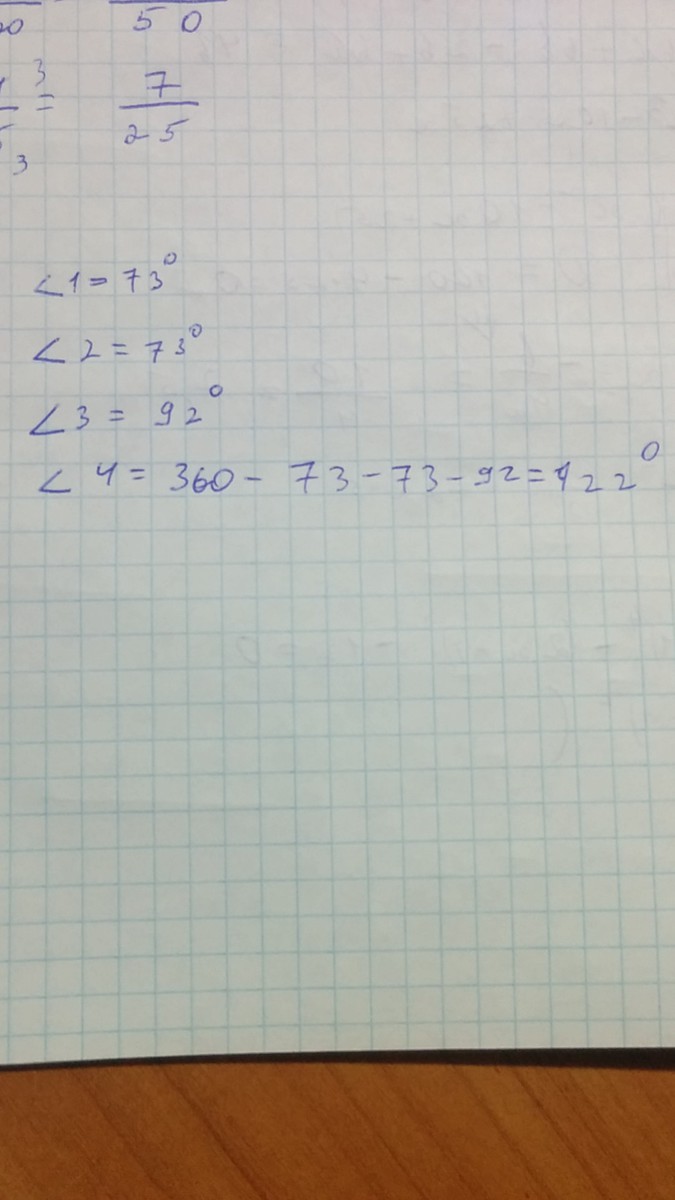 50
3
= 7/25
3
∠1 = 73°
∠2 = 73°
∠3 = 92°
∠4 = 360 - 73 - 73 - 92 = 122°